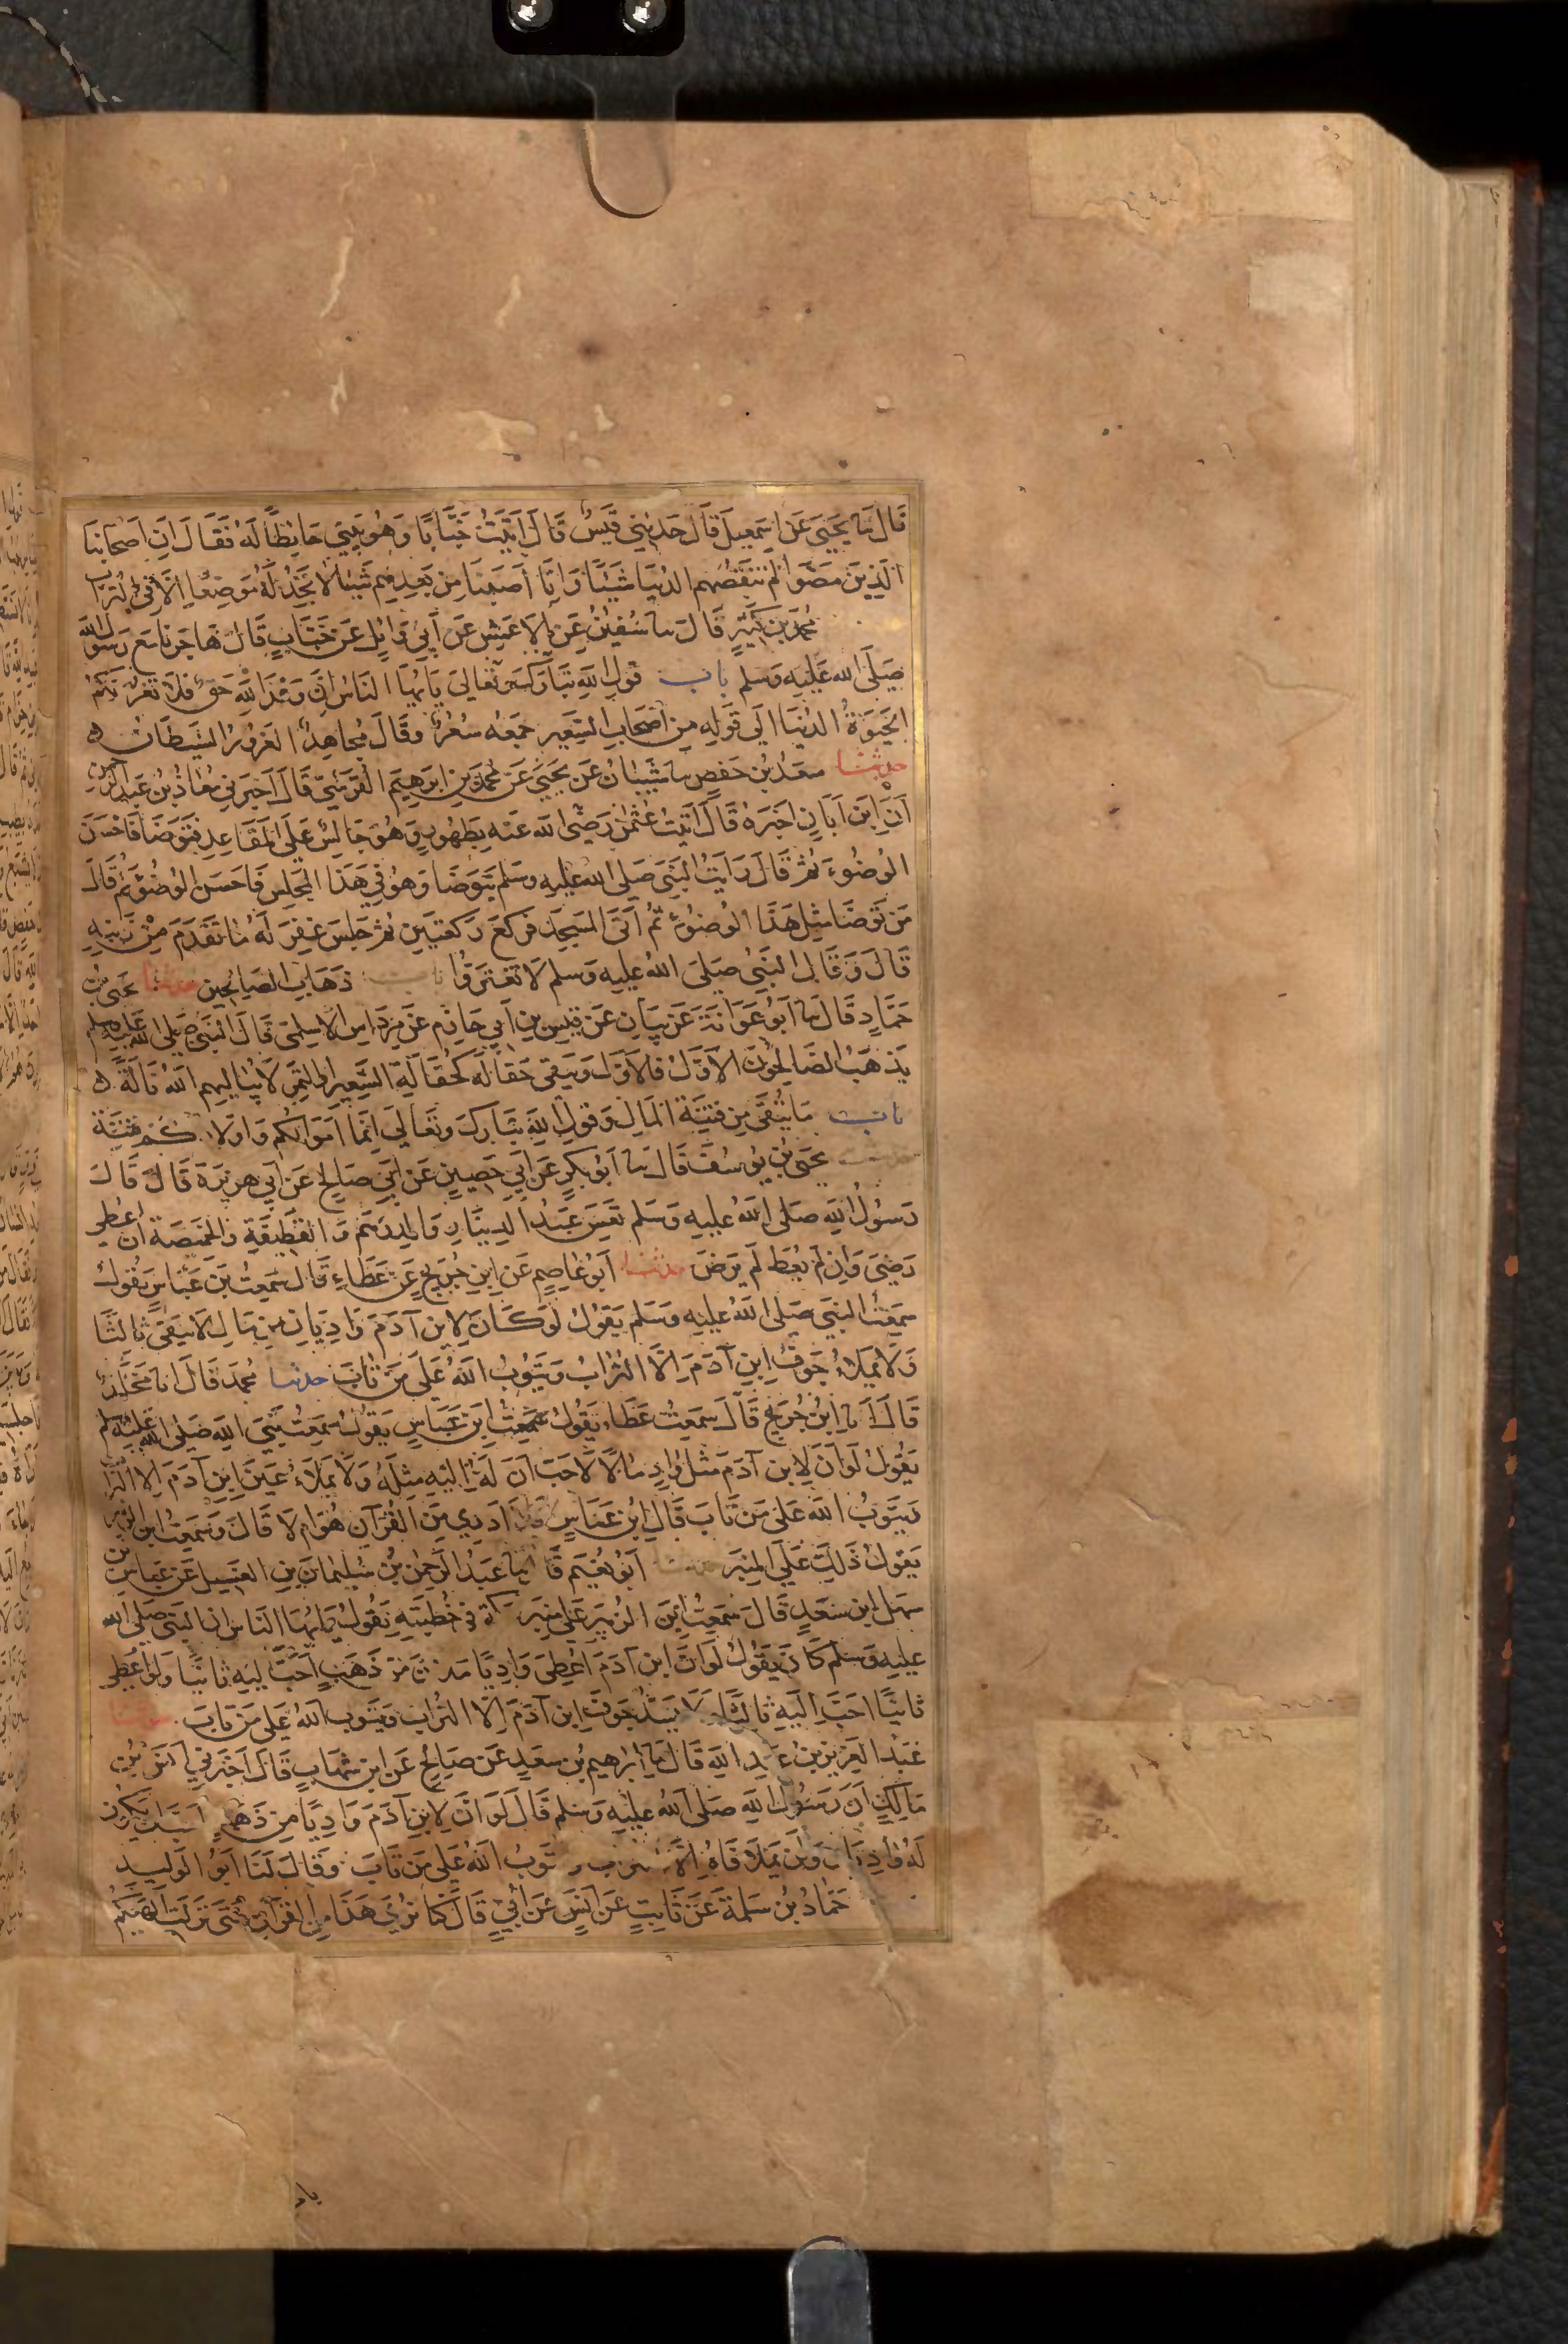 قَالَ نَا يَحْيَى عَنْ إِسْمَعِيلَ قَالَ حَدَّثَنِي قَيْسٌ قَالَ أَتَيْتُ خَبَّابًا وَهُوَ يَبْنِي حَائِطًا لَهُ فَقَالَ إِنَّ أَصْحَابَنَا
الَّذِينَ مَضَوْا لَمْ تَنْقُصْهُمُ الدُّنْيَا شَيْئًا وَإِنَّا أَصَبْنَا مِنْ بَعْدِهِمْ شَيْئًا لَا نَجِدُ لَهُ مَوْضِعًا إِلَّا فِي التُّرَابِ
مُحَمَّدُ بْنُ كَثِيرٍ قَالَ نا سُفْيٰنُ عَنِ الْأَعْمَشِ عَنْ أَبِي وَائِلٍ عَنْ خَبَّابٍ قَالَ هَاجَرْنَا مَعَ رَسُولِ اللَّهِ
صَلَّى اللهُ عَلَيْهِ وَسَلَّمَ باب قَوْلِ اللَّهِ تَبَارَكَ وَتَعَالَى يَا أَيُّهَا النَّاسُ إِنَّ وَعْدَ اللَّهِ حَقٌّ فَلَا تَغُرَّنَّكُمُ
الْحَيَوةُ الدُّنْيَا إِلَى قَوْلِهِ مِنْ أَصْحَابِ السَّعِيرِ جَمْعُهُ سُعُرٌ وَقَالَ مُجَاهِدٌ الْغَرُورُ الشَّيْطَانُ ه
حدثنا سَعْدُ بْنُ حَفْصٍ نا شَيْبَانُ عَنْ يَحْيَى عَنْ مُحَمَّدِ بْنِ إِبْرَهِيمَ الْقُرَشِيِّ قَالَ أَخْبَرَنِي مُعَاذُ بْنُ عَبْدِ الرَّحْمٰنِ
أَنَّ ابْنَ أَبَانٍ أَخْبَرَهُ قَالَ أَتَيْتُ عُثْمٰنَ رَضِيَ اللهُ عَنْهُ بِطَهُورٍ وَهُوَ جَالِسٌ عَلَى الْمَقَاعِدِ فَتَوَضَّأَ فَأَحْسَنَ
الْوُضُوءَ ثُمَّ قَالَ رَأَيْتُ النَّبِيَّ صَلَّى اللهُ عَلَيْهِ وَسَلَّمَ يَتَوَضَّأُ وَهُوَ فِي هَذَا الْمَجْلِسِ فَأَحْسَنَ الْوُضُوءَ ثُمَّ قَالَ
مَنْ تَوَضَّأَ مِثْلَ هَذَا الْوُضُوءِ ثُمَّ أَتَى الْمَسْجِدَ فَرَكَعَ رَكْعَتَيْنِ ثُمَّ جَلَسَ غُفِرَ لَهُ مَا تَقَدَّمَ مِنْ ذَنْبِهِ
قَالَ وَقَالَ النَّبِيُّ صَلَّى اللهُ عَلَيْهِ وَسَلَّمَ لَا تَغْتَرُّوا باب ذَهَابِ الصَّالِحِينَ حدثنا يَحْيَى بْنُ
حَمَّادٍ قَالَ نا أَبُو عَوَانَةَ عَنْ بَيَانٍ عَنْ قَيْسِ بْنِ أَبِي حَازِمٍ عَنْ مِرْدَاسٍ الْأَسْلَمِيِّ قَالَ النَّبِيُّ صَلَّى اللهُ عَلَيْهِ وَسَلَّمَ
يَذْهَبُ الصَّالِحُونَ الْأَوَّلُ فَالْأَوَّلُ وَيَبْقَى حُفَالَةٌ كَحُفَالَةِ الشَّعِيرِ أَوِ التَّمْرِ لَا يُبَالِيهِمُ اللَّهُ بَالَةً ه
باب مَا يُتَّقَى مِنْ فِتْنَةِ الْمَالِ وَقَوْلِ اللَّهِ تَبَارَكَ وَتَعَالَى إِنَّمَا أَمْوَالُكُمْ وَأَوْلَادُكُمْ فِتْنَةٌ
حدثنا يَحْيَى بْنُ يُوسُفَ قَالَ نا أَبُو بَكْرٍ عَنْ أَبِي حَصِينٍ عَنْ أَبِي صَالِحٍ عَنْ أَبِي هُرَيْرَةَ قَالَ قَالَ
رَسُولُ اللَّهِ صَلَّى اللهُ عَلَيْهِ وَسَلَّمَ تَعِسَ عَبْدُ الدِّينَارِ وَالدِّرْهَمِ وَالْقَطِيفَةِ وَالْخَمِيصَةِ إِنْ أُعْطِيَ
رَضِيَ وَإِنْ لَمْ يُعْطَ لَمْ يَرْضَ حدثنا أَبُو عَاصِمٍ عَنِ ابْنِ جُرَيْجٍ عَنْ عَطَاءٍ قَالَ سَمِعْتُ بْنَ عَبَّاسٍ يَقُولُ
سَمِعْتُ النَّبِيَّ صَلَّى اللهُ عَلَيْهِ وَسَلَّمَ يَقُولُ لَوْ كَانَ لِابْنِ آدَمَ وَادِيَانِ مِنْ مَالٍ لَابْتَغَى ثَالِثًا
وَلَا يَمْلَأُ جَوْفَ ابْنِ آدَمَ إِلَّا التُّرَابُ وَيَتُوبُ اللَّهُ عَلَى مَنْ تَابَ حدثنا مُحَمَّدٌ قَالَ انا مَخْلَدٌ
قَالَ انا ابْنُ جُرَيْجٍ قَالَ سَمِعْتُ عَطَاءً يَقُولُ سَمِعْتُ ابْنَ عَبَّاسٍ يَقُولُ سَمِعْتُ نَبِيَّ اللَّهِ صَلَّى اللهُ عَلَيْهِ وَسَلَّمَ
يَقُولُ لَوْ أَنَّ لِابْنِ آدَمَ مِثْلَ وَادٍ مَالًا لَأَحَبَّ أَنَّ لَهُ إِلَيْهِ مِثْلَهُ وَلَا يَمْلَأُ عَيْنَ ابْنِ آدَمَ إِلَّا التُّرَابُ
وَيَتُوبُ اللَّهُ عَلَى مَنْ تَابَ قَالَ ابْنُ عَبَّاسٍ فَلَا أَدْرِي مِنَ الْقُرْآنِ هُوَ أَمْ لَا قَالَ وَسَمِعْتُ ابْنَ الزُّبَيْرِ
يَقُولُ ذَلِكَ عَلَى الْمِنْبَرِ حدثنا أَبُو نُعَيْمٍ قَالَ نا عَبْدُ الرَّحْمٰنِ بْنُ سُلَيْمَانَ بْنِ الْغَسِيلِ عَنْ عَبَّاسِ بْنِ
سَهْلِ ابْنِ سَعْدٍ قَالَ سَمِعْتُ ابْنَ الزُّبَيْرِ عَلَى مِنْبَرِ مَكَّةَ فِي خُطْبَتِهِ يَقُولُ يَا أَيُّهَا النَّاسُ إِنَّ النَّبِيَّ صَلَّى اللهُ
عَلَيْهِ وَسَلَّمَ كَانَ يَقُولُ لَوْ أَنَّ ابْنَ آدَمَ أُعْطِيَ وَادِيًا مَلْآنَ مِنْ ذَهَبٍ أَحَبَّ إِلَيْهِ ثَانِيًا وَلَوْ أُعْطِيَ
ثَانِيًا أَحَبَّ إِلَيْهِ ثَالِثًا وَلَا يَسُدُّ جَوْفَ ابْنِ آدَمَ إِلَّا التُّرَابُ وَيَتُوبُ اللَّهُ عَلَى مَنْ تَابَ حدثنا
عَبْدُ الْعَزِيزِ بْنُ عَبْدِ اللَّهِ قَالَ نا إِبْرَاهِيمُ بْنُ سَعْدٍ عَنْ صَالِحٍ عَنِ ابْنِ شِهَابٍ قَالَ أَخْبَرَنِي أَنَسُ بْنُ
مَالِكٍ أَنَّ رَسُولَ اللَّهِ صَلَّى اللهُ عَلَيْهِ وَسَلَّمَ قَالَ لَوْ أَنَّ لِابْنِ آدَمَ وَادِيًا مِنْ ذَهَبٍ أَحَبَّ أَنْ يَكُونَ
لَهُ وَادِيَانِ وَلَنْ يَمْلَأَ فَاهُ إِلَّا التُّرَابُ وَيَتُوبُ اللَّهُ عَلَى مَنْ تَابَ وَقَالَ لَنَا أَبُو الْوَلِيدِ
حَمَّادُ بْنُ سَلَمَةَ عَنْ ثَابِتٍ عَنْ أَنَسٍ عَنْ أُبَيٍّ قَالَ كُنَّا نُرَى هَذَا مِنَ الْقُرْآنِ حَتَّى نَزَلَتْ أَلْهٰيكُمُ